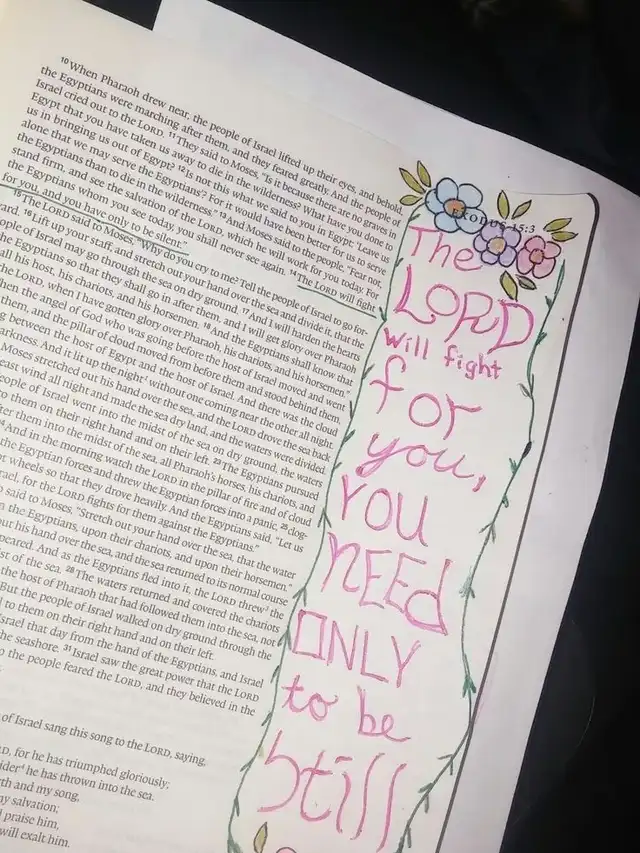 10 When Pharaoh drew near, the people of Israel lifted up their eyes, and behold,
the Egyptians were marching after them, and they feared greatly. And the people of
Israel cried out to the LORD. 11 They said to Moses, "Is it because there are no graves in
Egypt that you have taken us away to die in the wilderness? What have you done to
us in bringing us out of Egypt? 12 Is not this what we said to you in Egypt: 'Leave us
alone that we may serve the Egyptians'? For it would have been better for us to serve
the Egyptians than to die in the wilderness." 13 And Moses said to the people, "Fear not,
stand firm, and see the salvation of the LORD, which he will work for you today. For
the Egyptians whom you see today, you shall never see again. 14 The LORD will fight
for you, and you have only to be silent."
15 The LORD said to Moses, "Why do you cry to me? Tell the people of Israel to go for-
ard. 16 Lift up your staff, and stretch out your hand over the sea and divide it, that the
ople of Israel may go through the sea on dry ground. 17 And I will harden the hearts
the Egyptians so that they shall go in after them, and I will get glory over Pharaoh
all his host, his chariots, and his horsemen. 18 And the Egyptians shall know that
the LORD, when I have gotten glory over Pharaoh, his chariots, and his horsemen."
hen the angel of God who was going before the host of Israel moved and went
them, and the pillar of cloud moved from before them and stood behind them,
g between the host of Egypt and the host of Israel. And there was the cloud
arkness. And it lit up the night without one coming near the other all night.
Moses stretched out his hand over the sea, and the LORD drove the sea back
east wind all night and made the sea dry land, and the waters were divided.
eople of Israel went into the midst of the sea on dry ground, the waters
to them on their right hand and on their left. 23 The Egyptians pursued
fter them into the midst of the sea, all Pharaoh's horses, his chariots, and
And in the morning watch the LORD in the pillar of fire and of cloud
the Egyptian forces and threw the Egyptian forces into a panic, 25 clog-
t wheels so that they drove heavily. And the Egyptians said, "Let us
rael, for the LORD fights for them against the Egyptians."
said to Moses, "Stretch out your hand over the sea, that the water
n the Egyptians, upon their chariots, and upon their horsemen."
out his hand over the sea, and the sea returned to its normal course
peared. And as the Egyptians fled into it, the LORD threw the
st of the sea. 28 The waters returned and covered the chariots
the host of Pharaoh that had followed them into the sea, not
But the people of Israel walked on dry ground through the
to them on their right hand and on their left.
Israel that day from the hand of the Egyptians, and Israel
he seashore. 31 Israel saw the great power that the LORD
o the people feared the LORD, and they believed in the
of Israel sang this song to the LORD, saying,
D, for he has triumphed gloriously;
ider he has thrown into the sea.
th and my song,
y salvation;
praise him,
will exalt him.
EXODUS 15:3
The
LORD
will fight
for
you,
YOU
NEEd
ONLY
to be
Still